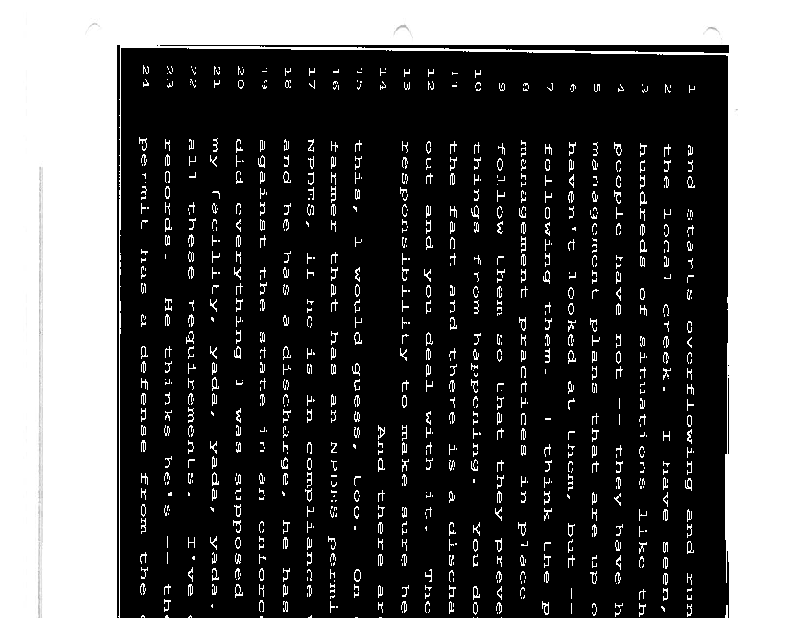 1 and starts overflowing and run
2 the local creek. I have seen,
3 hundreds of situations like th
4 people have not -- they have h
5 management plans that are up o
6 haven't looked at them, but --
7 following them. I think the p
8 management practices in place
9 follow them so that they preve
10 things from happening. You do
11 the fact and there is a discha
12 out and you deal with it. The
13 responsibility to make sure he
14 And there are
15 this, I would guess, too. On
16 farmer that has an NPDES permi
17 NPDES, if he is in compliance
18 and he has a discharge, he has
19 against the state in an enforce
20 did everything I was supposed
21 my facility, yada, yada, yada.
22 all these requirements. I've
23 records. He thinks he's -- the
24 permit has a defense from the